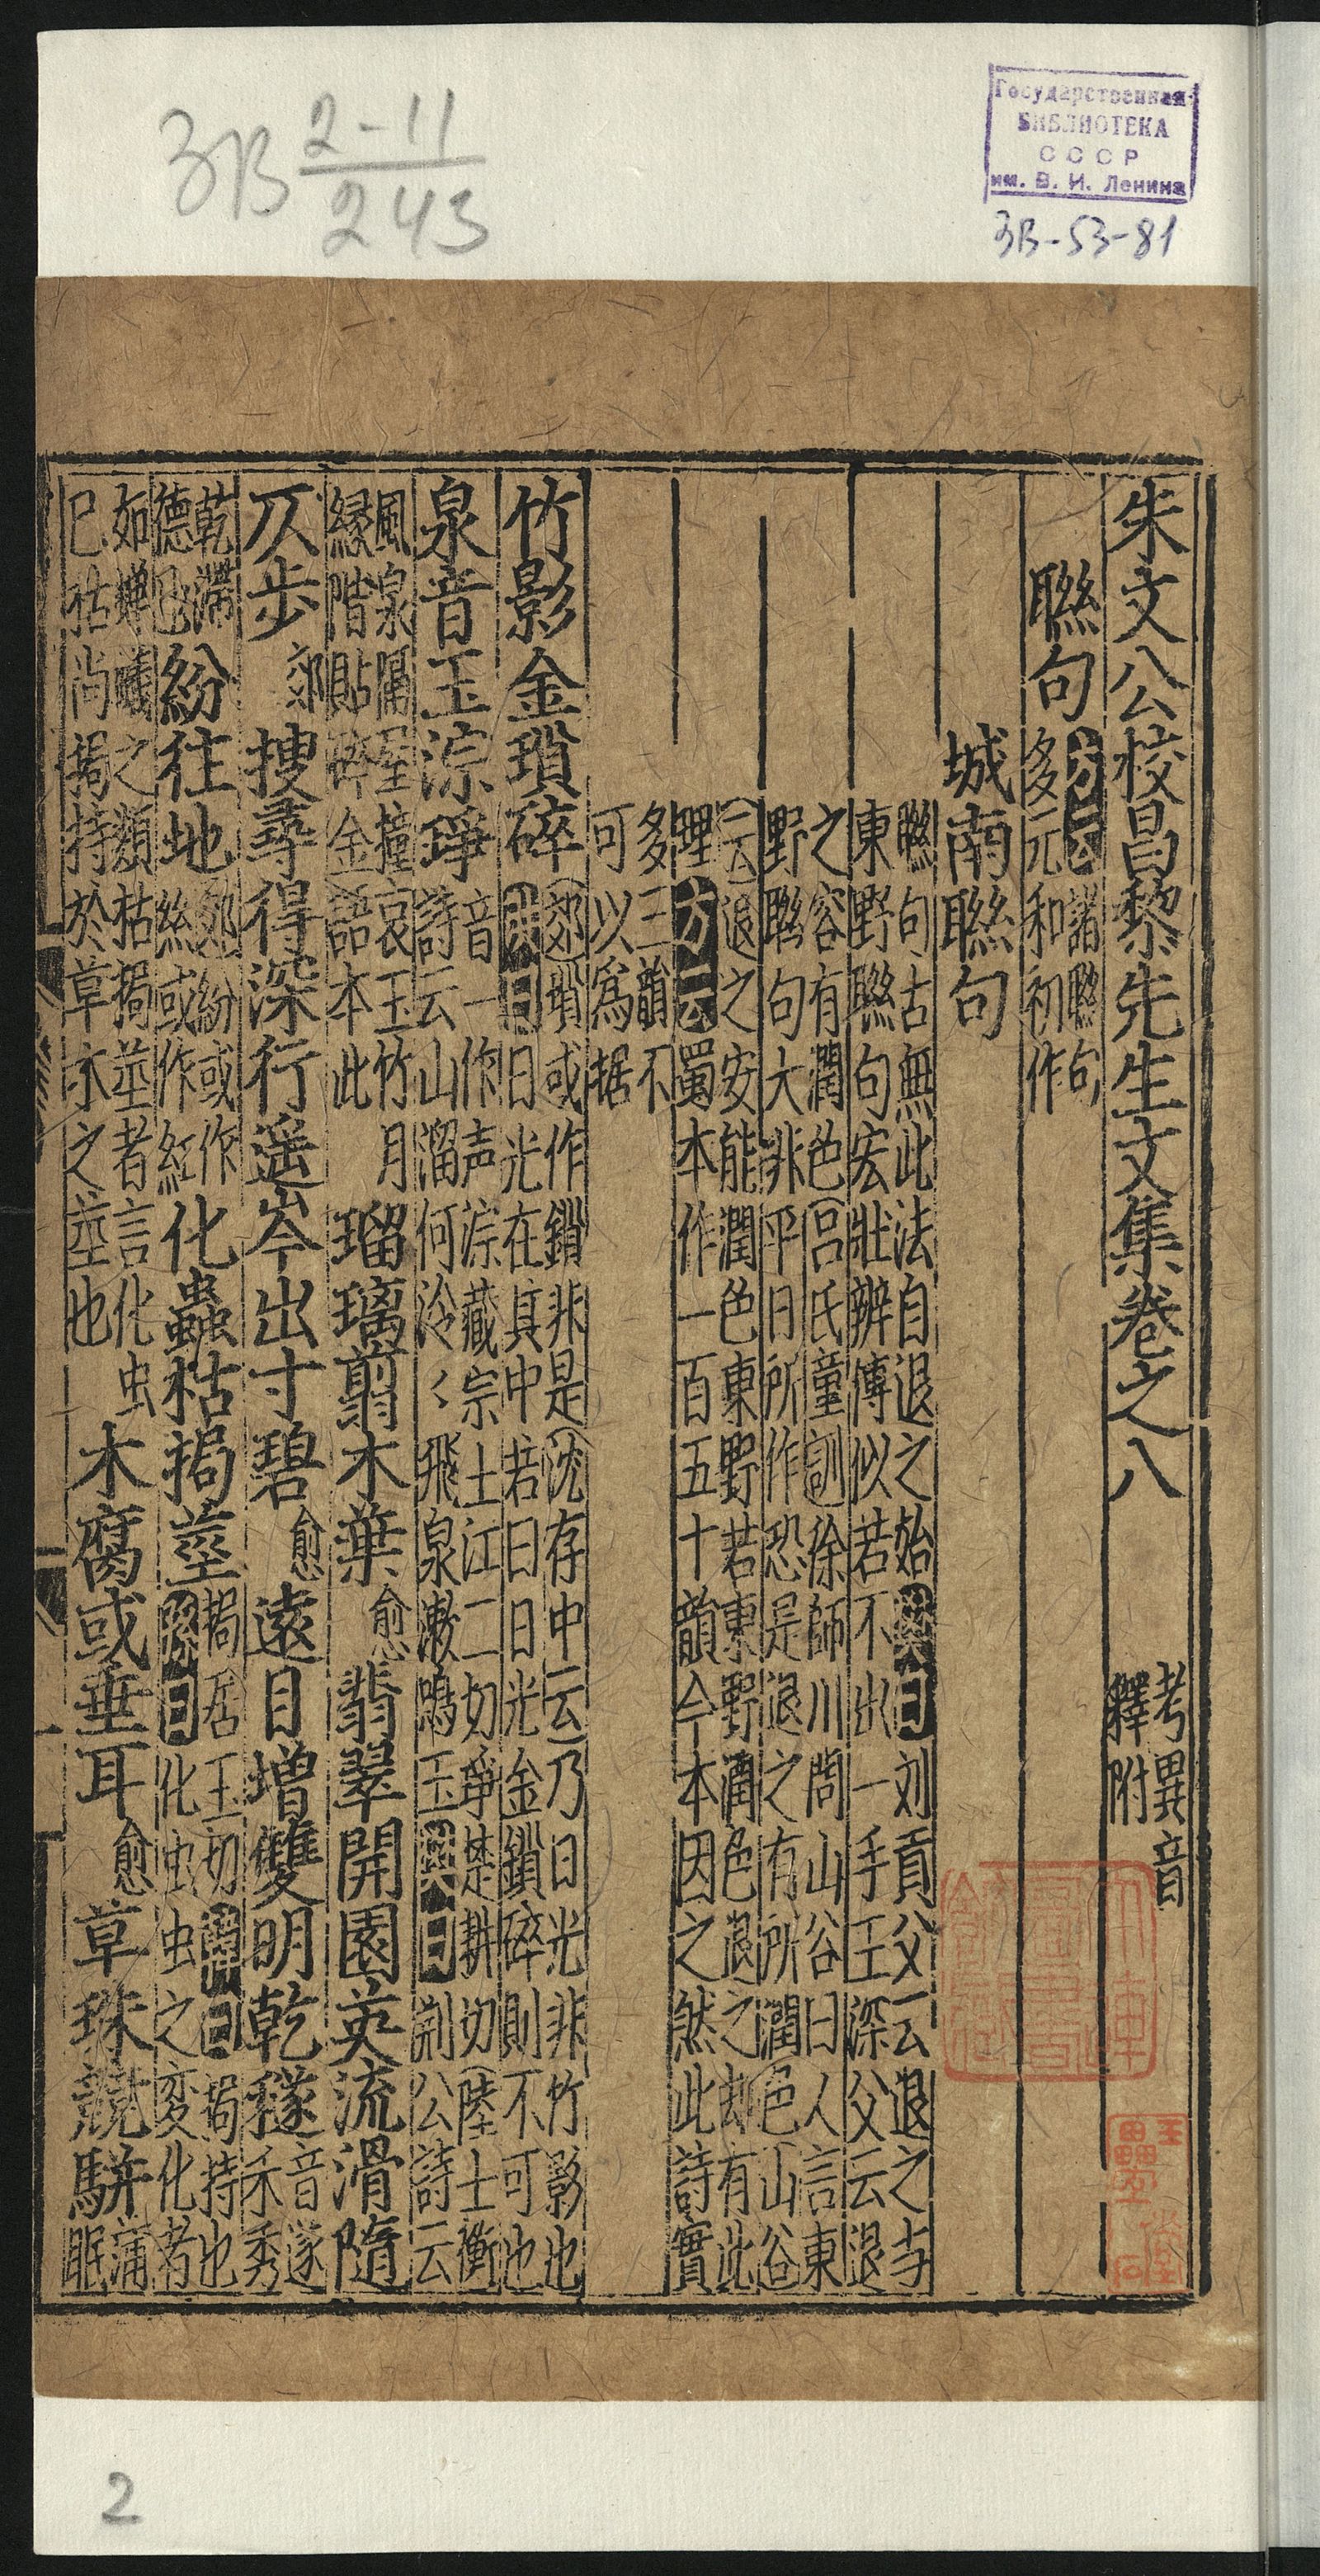 ЗВ 2-11/243
Государственная
БИБЛИОТЕКА
СССР
им. В. И. Ленина
ЗВ-53-81
朱文公校昌黎先生文集卷之八 考異音釋附
聯句 方云諸聯句多元和初作
城南聯句
聯句古無此法自退之始 曰刘貢父云退之与
東野聯句宏壯辨傳似若不出一手王深父云退
之容有潤色(呂氏童訓徐師川問山谷曰人言東
野聯句大非平日所作恐是退之有所潤色山谷
(云)退之安能潤色東野若東野潤色退之却有此
理方云蜀本作一百五十韻今本因之然此詩實
多三韻不
可以爲据
竹影金瑣碎(郊)瑣或作鎖非是(沈存中云)乃日光非竹影也 曰日光在其中若曰日光金鎖碎則不可也
泉音玉淙琤音一作声淙藏宗土江二切琤楚耕切(陸士衡詩云山溜何泠〻飛泉漱鳴玉 曰荆公詩云
風泉隔屋撞哀玉竹月緣階貼碎金語本此 瑠璃翦木葉愈 翡翠開園英流滑隨
仄步郊 搜尋得深行遥岑出寸碧愈 遠目增雙明乾穟音遂禾秀
乾滯德 紛往地郊紛或作絲或作紅 化蟲枯挶莖挶居玉切 曰挶持也 曰化虫虫之变化者
如蟬 之類枯挶莖者言化虫已枯尚挶持於草木之莖也 木腐或垂耳愈 草珠競駢蒲眠
2